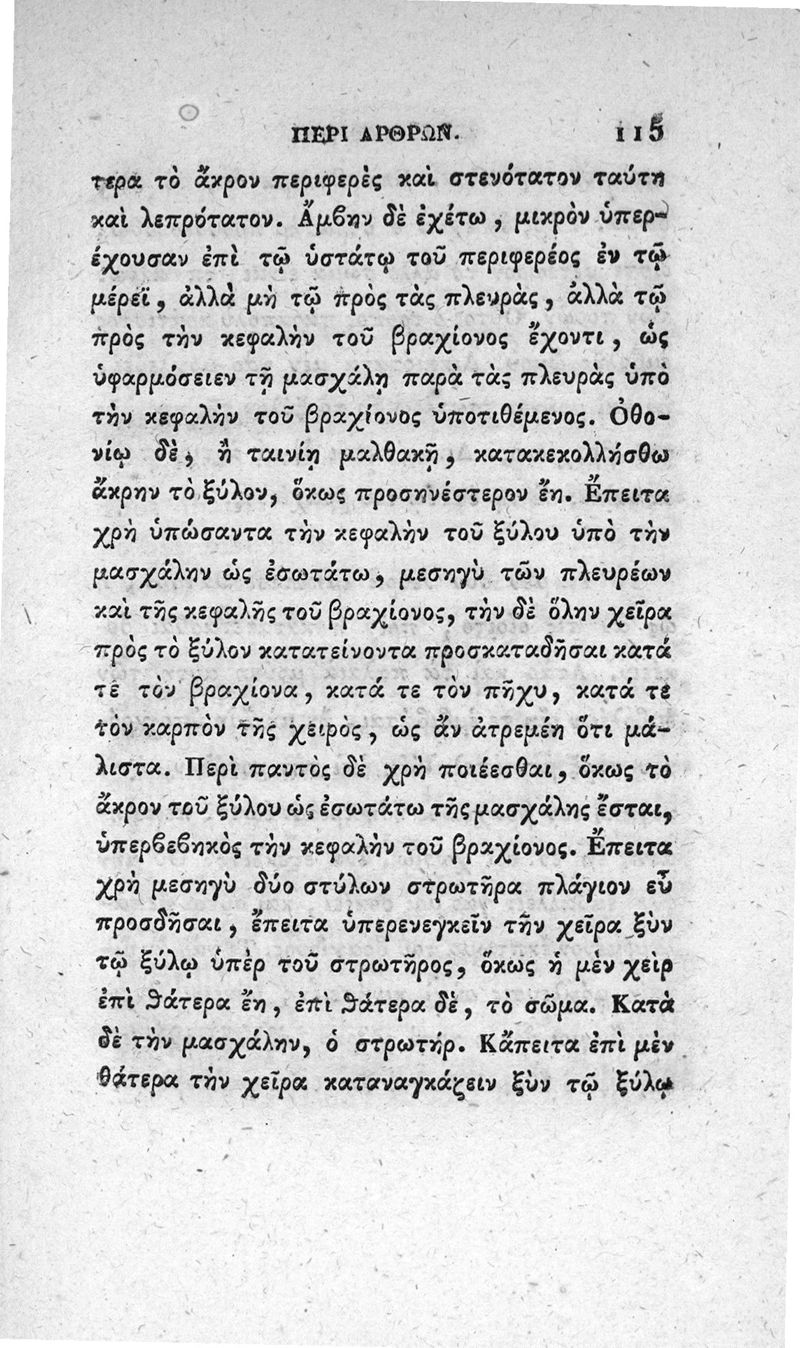 ΠΕΡΙ ΑΡΘΡΩΝ. 115
τερα τὸ ἄκρον περιφερὲς καὶ στενότατον ταύτῃ
καὶ λεπρότατον. Ἄμβην δὲ ἐχέτω, μικρὸν ὑπερ-
έχουσαν ἐπὶ τῷ ὑστάτῳ τοῦ περιφερέος ἐν τῷ
μέρεϊ, ἀλλὰ μὴ τῷ πρὸς τὰς πλευρὰς, ἀλλὰ τῷ
πρὸς τὴν κεφαλὴν τοῦ βραχίονος ἔχοντι, ὡς
ὑφαρμόσειεν τῇ μασχάλῃ παρὰ τὰς πλευρὰς ὑπὸ
τὴν κεφαλὴν τοῦ βραχίονος ὑποτιθέμενος. Ὀθο-
νίῳ δὲ, ἢ ταινίῃ μαλθακῇ, κατακεκολλήσθω
ἄκρην τὸ ξύλον, ὅκως προσηνέστερον ἔῃ. Ἔπειτα
χρὴ ὑπώσαντα τὴν κεφαλὴν τοῦ ξύλου ὑπὸ τὴν
μασχάλην ὡς ἐσωτάτω, μεσηγὺ τῶν πλευρέων
καὶ τῆς κεφαλῆς τοῦ βραχίονος, τὴν δὲ ὅλην χεῖρα
πρὸς τὸ ξύλον κατατείνοντα προσκαταδῆσαι κατά
τε τὸν βραχίονα, κατά τε τὸν πῆχυ, κατά τε
τὸν καρπὸν τῆς χειρὸς, ὡς ἂν ἀτρεμέῃ ὅτι μά-
λιστα. Περὶ παντὸς δὲ χρὴ ποιέεσθαι, ὅκως τὸ
ἄκρον τοῦ ξύλου ὡς ἐσωτάτω τῆς μασχάλης ἔσται,
ὑπερβεβηκὸς τὴν κεφαλὴν τοῦ βραχίονος. Ἔπειτα
χρὴ μεσηγὺ δύο στύλων στρωτῆρα πλάγιον εὖ
προσδῆσαι, ἔπειτα ὑπερενεγκεῖν τὴν χεῖρα ξὺν
τῷ ξύλῳ ὑπὲρ τοῦ στρωτῆρος, ὅκως ἡ μὲν χεὶρ
ἐπὶ ϑάτερα ἔῃ, ἐπὶ ϑάτερα δὲ, τὸ σῶμα. Κατὰ
δὲ τὴν μασχάλην, ὁ στρωτήρ. Κἄπειτα ἐπὶ μὲν
θάτερα τὴν χεῖρα καταναγκάζειν ξὺν τῷ ξύλῳ